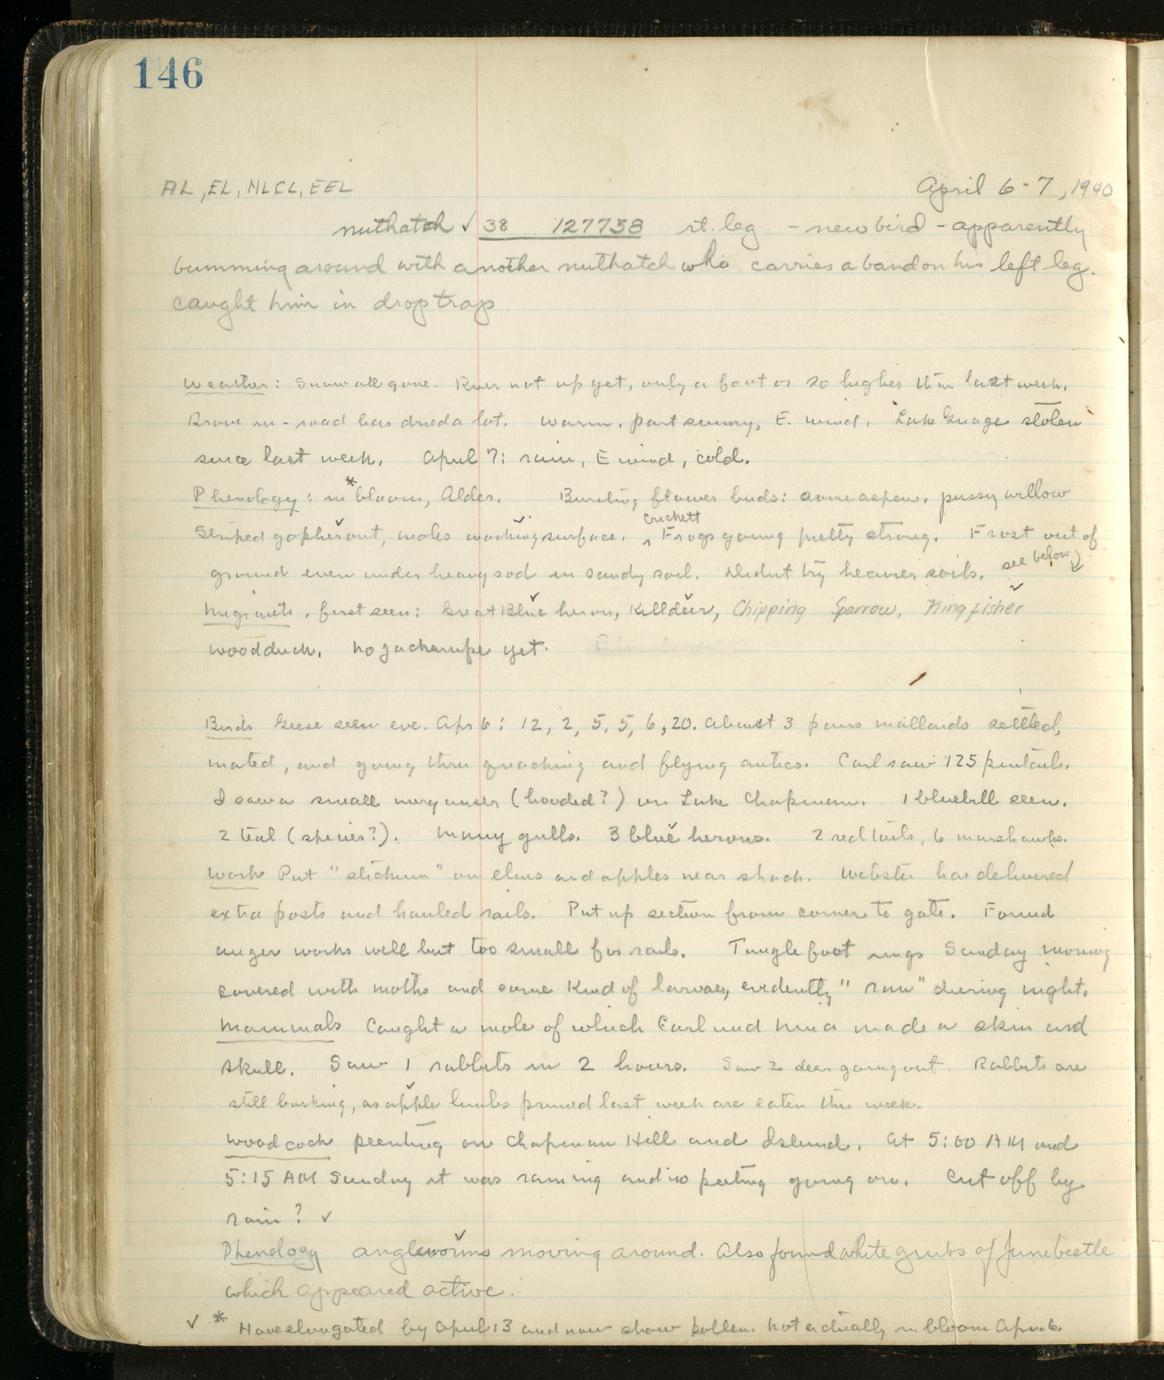 146
AL, EL, NLCL, EEL April 6-7, 1940
nuthatch ✓ 38 127738 rt. leg - new bird - apparently
bumming around with another nuthatch who carries a band on his left leg.
caught him in drop trap
Weather: Snow all gone. River not up yet, only a foot or so higher than last week.
Drove in - road has dried a lot. Warm, part sunny, E. wind. Lake Guage stolen
since last week. April 7: rain, E wind, cold.
Phenology: in *bloom, Alder. Bursting flower buds: some aspen, pussy willow
Striped gopher✓ out, moles working✓ surface. ^ Crickett Frogs going pretty strong. Frost out of
ground even under heavy sod in sandy soil. Didnt try heavier soils. see below
Migrants, first seen: Great Blue✓ heron, Killdeer✓, Chipping Sparrow, Kingfisher✓
woodduck. No jacksnipe yet.
Birds Geese seen eve. Apr 6: 12, 2, 5, 5, 6, 20. About 3 pairs mallards settled,
mated, and going thru quacking and flying antics. Carl saw 125 pintails.
I saw a small merganser (hooded?) on Lake Chapman. 1 bluebill seen.
2 teal (species?). Many gulls. 3 blue✓ herons. 2 redtails, 6 marshawks.
Work Put "stickum" on elms and apples near shack. Webster has delivered
extra posts and hauled rails. Put up section from corner to gate. Found
auger works well but too small for rails. Tanglefoot rings Sunday morning
covered with moths and some kind of larvae, evidently "ran" during night.
Mammals Caught a mole of which Carl and Nina made a skin and
skull. Saw 1 rabbits in 2 hours. Saw 2 deer going out. Rabbits are
still barking, as apple✓ limbs pruned last week are eaten this week.
Woodcock peenting on Chapman Hill and Island. At 5:00 AM and
5:15 AM Sunday it was raining and no peenting going on. Cut off by
rain? ✓
Phenology angleworms✓ moving around. Also found white grubs of Junebeetle
which appeared active.
✓ * Have elongated by April 13 and now show pollen. Not actually in bloom Apr. 6.